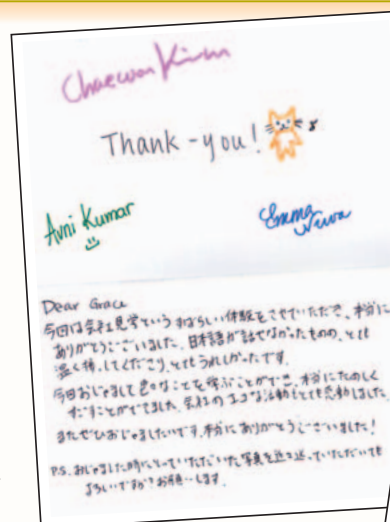 Chaewon Kim
Thank-you!
Avni Kumar
Emma
Dear Grace
今回は会社見学というすばらしい体験をさせていただき、本当に
ありがとうございました。日本語が話せなかったものの、とても
温く接してくださり、とてもうれしかったです。
今日おじゃまして色々なことを学ぶことができ、本当にたのしく
すごすことができました。会社のエコな活動にとても感動しました。
またぜひおじゃましたいです。本当にありがとうございました!
P.S. おじゃました時にとっていただいた写真を送っていただいても
よろしいですか?お願いします。